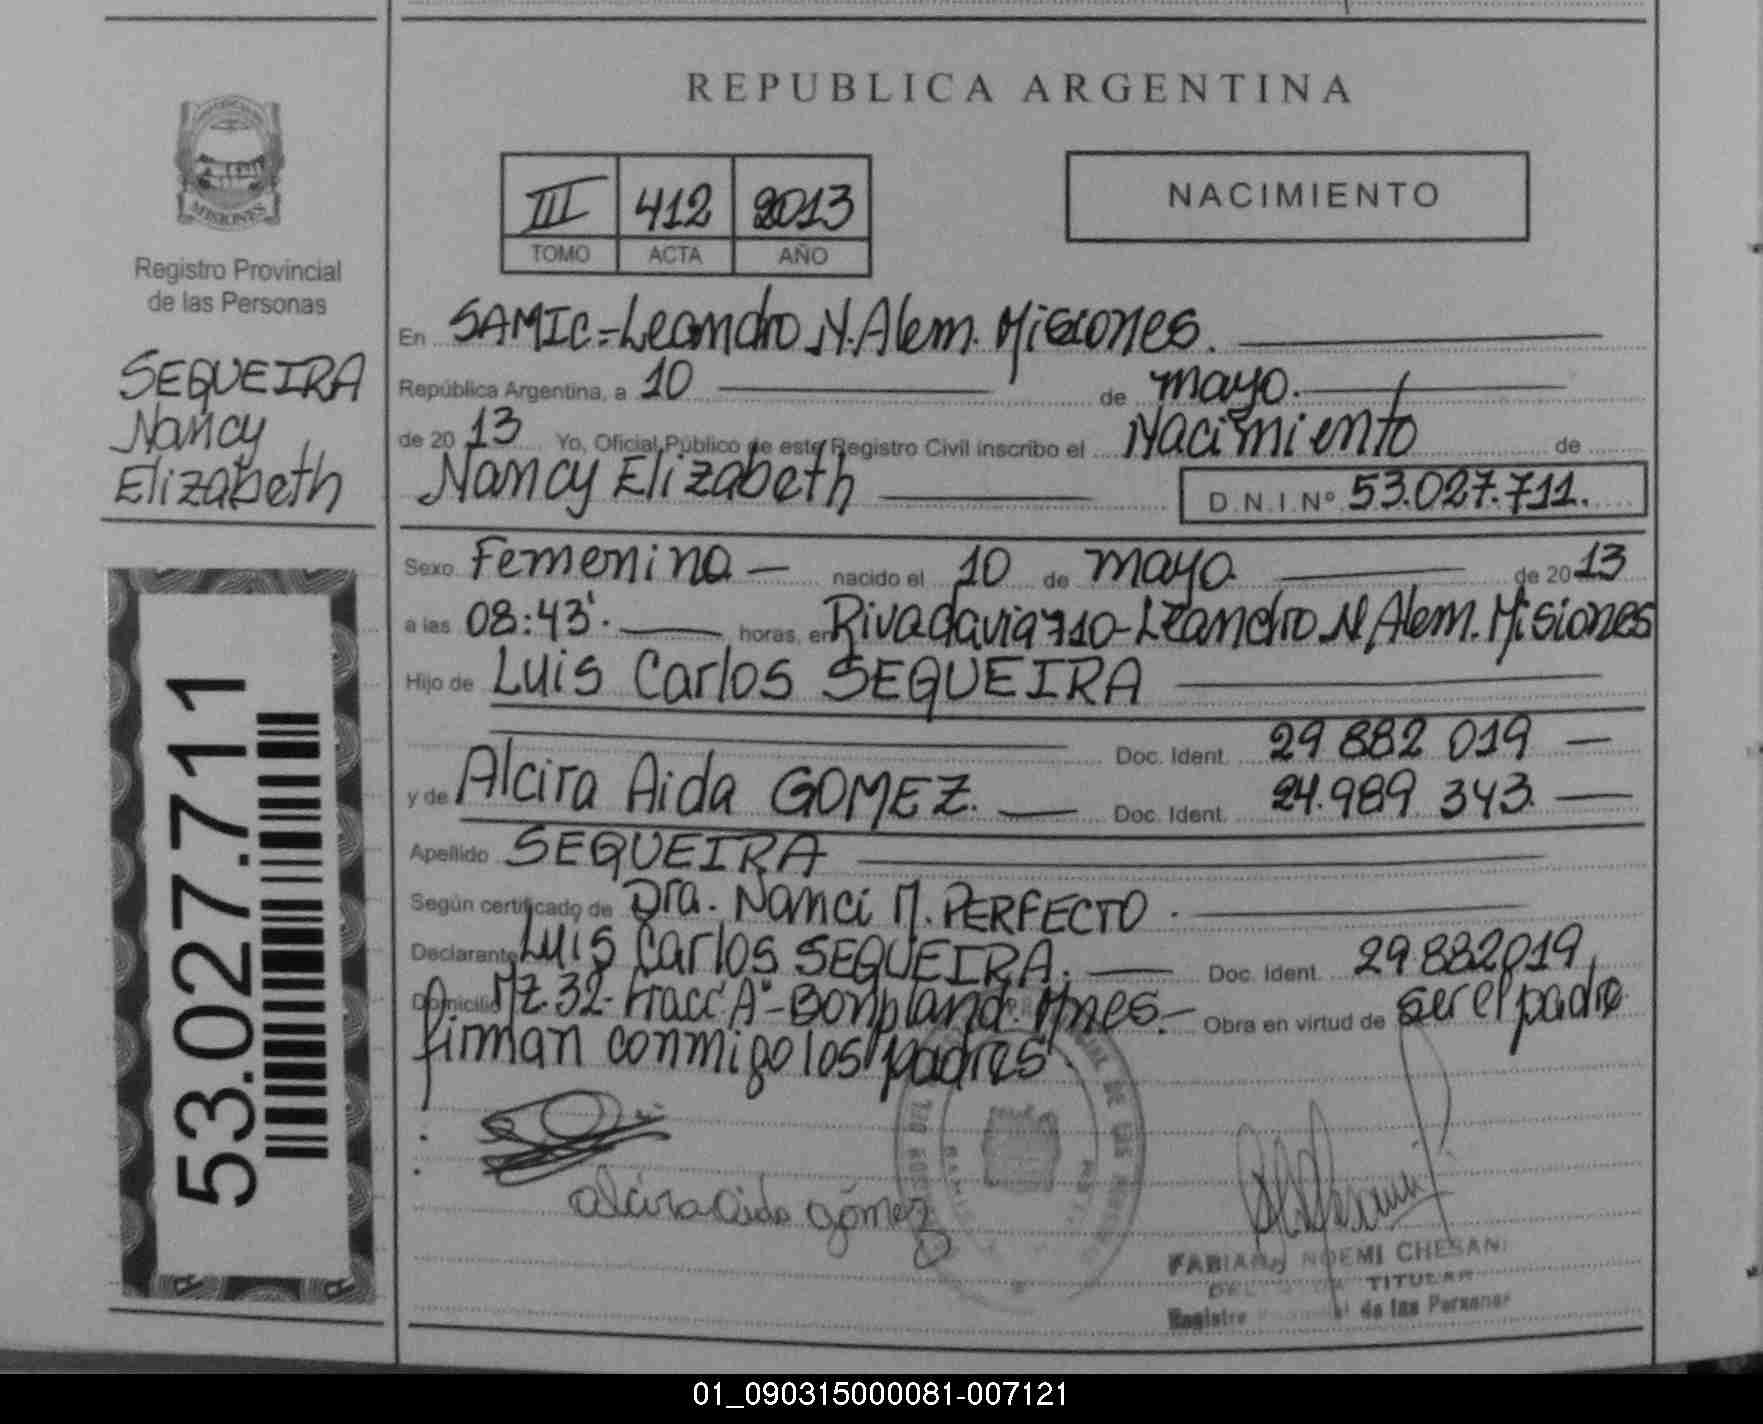 REPUBLICA ARGENTINA
MISIONES
Registro Provincial
de las Personas
SEQUEIRA
Nancy
Elizabeth
53.027.711
III 412 2013
TOMO ACTA AÑO
NACIMIENTO
En SAMIC=Leandro N. Alem. Misiones.
República Argentina, a 10 de mayo.
de 2013 Yo, Oficial Público de este Registro Civil inscribo el Nacimiento de
Nancy Elizabeth D.N.I.Nº 53.027.711.
Sexo Femenino — nacido el 10 de mayo de 2013
a las 08:43'. horas, en Rivadavia 710-Leandro N. Alem. Misiones
Hijo de Luis Carlos SEQUEIRA
Doc. Ident. 29 882 019 —
y de Alcira Aida GOMEZ. — Doc. Ident. 24.989 343. —
Apellido SEQUEIRA
Según certificado de Dra. Nanci M. PERFECTO.
Declarante Luis Carlos SEQUEIRA. — Doc. Ident. 29.882019,
Domicilio Mz. 32- Fracc "A"- Bonpland. Mnes. — Obra en virtud de ser el padre.
firman conmigo los padres.
alcira aida gómez
FABIANA NOEMI CHESANI
TITULAR
Registro de las Personas
01_090315000081-007121